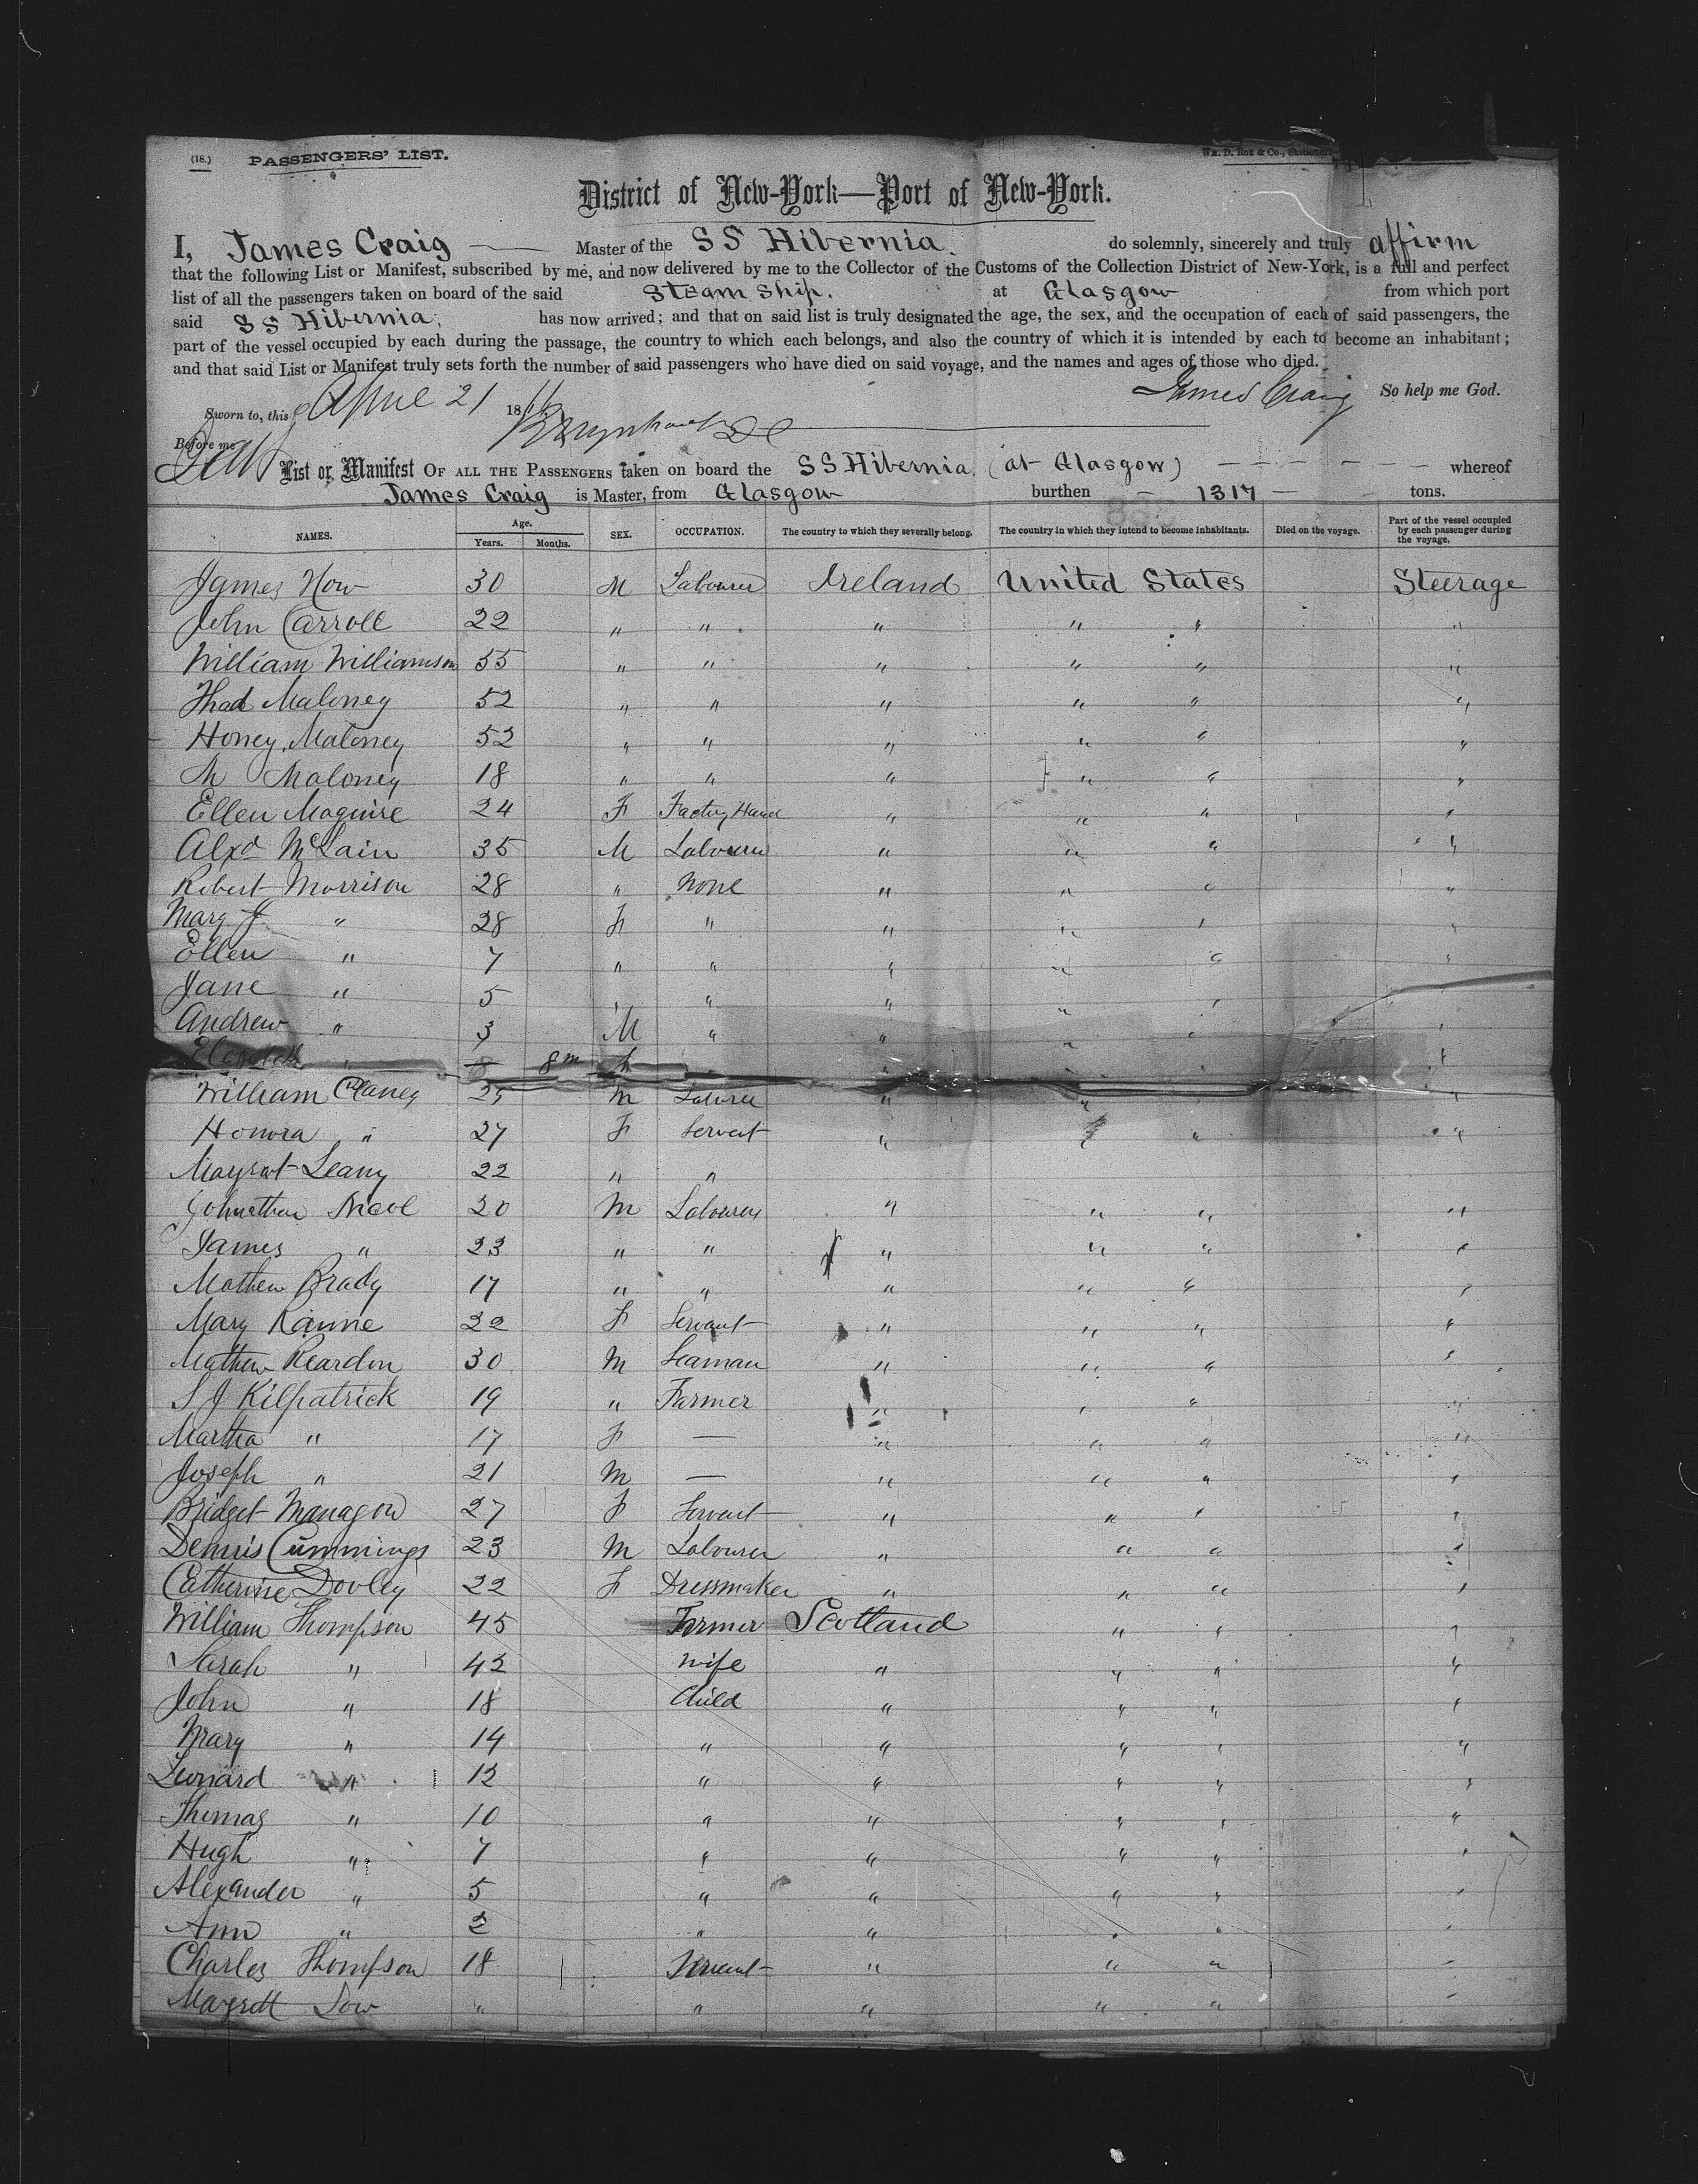 (18.) PASSENGERS' LIST. Wm. D. Roe & Co., Stationers
District of New-York—Port of New-York.
I, James Craig Master of the SS Hibernia do solemnly, sincerely and truly affirm
that the following List or Manifest, subscribed by me, and now delivered by me to the Collector of the Customs of the Collection District of New-York, is a full and perfect
list of all the passengers taken on board of the said Steam Ship. at Glasgow from which port
said SS Hibernia, has now arrived; and that on said list is truly designated the age, the sex, and the occupation of each of said passengers, the
part of the vessel occupied by each during the passage, the country to which each belongs, and also the country of which it is intended by each to become an inhabitant;
and that said List or Manifest truly sets forth the number of said passengers who have died on said voyage, and the names and ages of those who died.
James Craig So help me God.
Sworn to, this April 21 18
Before me
List or Manifest OF ALL THE PASSENGERS taken on board the SS Hibernia. (at Glasgow) whereof
James Craig is Master, from Glasgow burthen 1317 tons.
NAMES. Age. Years. Months. SEX. OCCUPATION. The country to which they severally belong. The country in which they intend to become inhabitants. Died on the voyage. Part of the vessel occupied by each passenger during the voyage.
James How 30 M Labourer Ireland United States Steerage
John Carroll 22 " " " " " "
William Williamson 55 " " " " " "
Thad Maloney 52 " " " " " "
Honey Maloney 52 " " " " " "
M Maloney 18 " " " " " "
Ellen Maguire 24 F Factory Hand " " " "
Alxd McLain 35 M Labourer " " " "
Robert Morrison 28 " None " " " "
Mary J " 28 F " " " " "
Ellen " 7 " " " " " "
Jane " 5 " " " " " "
Andrew " 3 M " " " " "
" 8m F " " "
William Claney 25 M Labourer " " "
Honora " 27 F Servant " " " "
Margret Leany 22 " "
Johnathan Nicol 20 M Labourer " " " "
James " 23 " " " " " "
Mathew Brady 17 " " " " " "
Mary Rannie 22 F Servant " " " "
Mathew Reardon 30 M Seaman " " " "
S J Kilpatrick 19 " Farmer " " " "
Martha " 17 F — " " " "
Joseph " 21 M — " " " "
Bridget Managow 27 F Servant " " " "
Dennis Cummings 23 M Labourer " " " "
Catherine Dooley 22 F Dressmaker " " " "
William Thompson 45 Farmer Scotland " " "
Sarah " 42 Wife " " " "
John " 18 Child " " " "
Mary " 14 " " " " "
Leonard " 12 " " " " "
Thomas " 10 " " " " "
Hugh " 7 " " " " "
Alexander " 5 " " " " "
Ann " 2 " " " " "
Charles Thompson 18 Servant " " " "
Margrett Dow " " " " " "